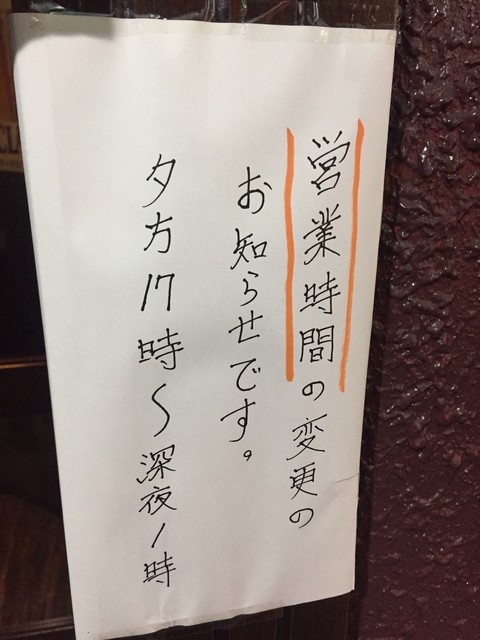 営業時間の変更の
お知らせです。
夕方17時〜深夜1時